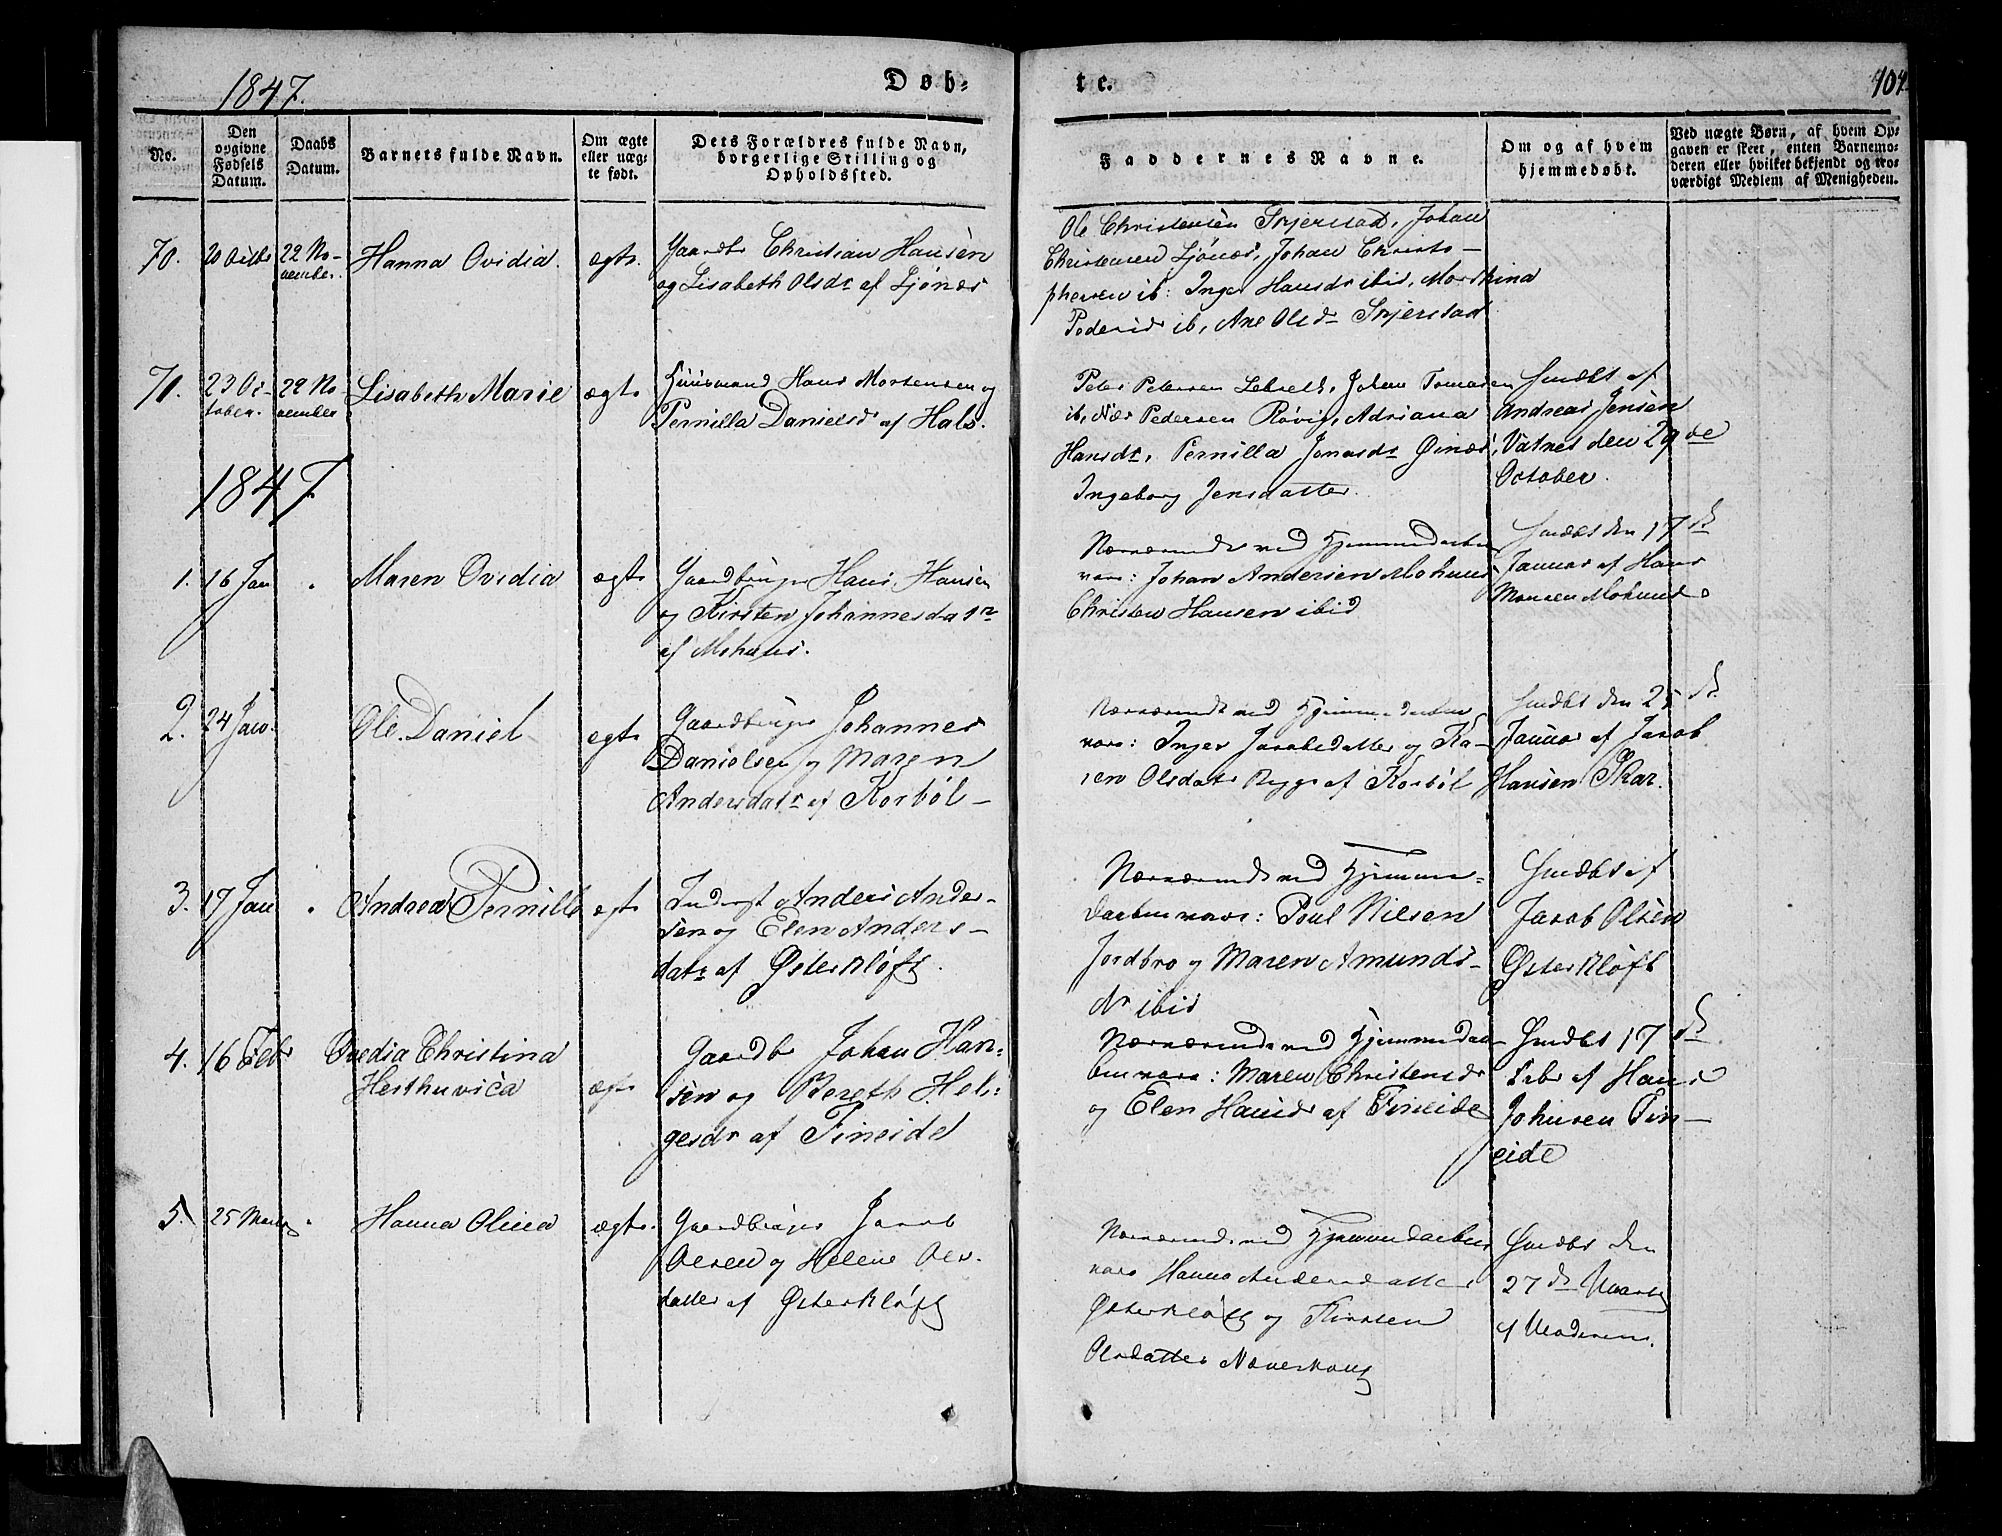 1847.
Døb-
te.
No.
Den opgivne Fødsels Datum.
Daabs Datum.
Barnets fulde Navn.
Om ægte eller uæg-te født.
Dets Forældres fulde Navn, borgerlige Stilling og Opholdssted.
Faddernes Navne.
Om og af hvem hjemmedøbt.
Ved uægte Børn, af hvem Op-
gaven er skeet, enten Barnemo-
deren eller hvilket bekjendt og tro-
værdigt Medlem af Menigheden.
70.
22 No-
vember.
Hanna Ovidia.
ægte.
Gaardbr Christian Hansen
og Lisabeth Olsdr af Ljønes
Ole Christensen Skjerstad, Johan
Christensen Ljønes, Johan Christo-
phersen ib: Inger Hansdr ibid, Mordkina
Pedersdr ib, Ane Olsdr Skjerstad
71.
23 Oc-
tober.
22 No
vember
Lisabeth Marie
ægte
Huusmand Hans Mortensen og
Pernilla Danielsd af Hals.
Peter Petersen Johan Tomasen
ib, Pedersen Røvig, Adriana
Hansdr, Pernilla Jonasdr Øinæs,
Ingeborg Jensdatter.
Hmdbt af
Andreas Jensen
Vatnet den 29de
October.
1847
1.
16 Jan
Maren Ovidia
ægte
Gaardbruger Hans Hansen
og Kirsten Johannesdatr
af Mohuus.
Nærværende ved Hjemmedaaben
vare: Johan Andersen Mohuus
Christen Hansen ibid
Hmdbt den 17d
Januar af Hans
Monsen Mohuus
2.
24 Jan.
Ole Daniel
ægte
Gaardbruger Johannes
Danielsen og Maren
Andersdatr af Kosbøl-
Nærværende ved Hjemmedaaben
vare: Inger Jacobsdatter og Ka-
ren Olsdatr af Kosbøl
Hmdbt den 25d
Januar af Jacob
Hansen Skar.
3.
17 Jan
Andrea Pernilla
ægte
Inderst Anders Ander-
sen og Elen Anders-
datr af Østerkløft.
Nærværende ved Hjemme-
daaben vare: Poul Nilsen
Jordbro og Maren Amunds-
dr ibid
Hmdbt af
Jacob Olsen
Østerkløft
4.
16 Febr
Ovedia Christina
Hesthuvica
ægte
Gaardbr Johan Han-
sen og Bereth Hel-
gesdr af Fineide
Nærværende ved Hjemmedaa-
ben vare: Maren Christensdr
og Elen Hansdr af Fineide
Hmdbt 17d
Febr af Hans
Johnsen Fin-
eide
5.
25 Marts
Hanna Olina
ægte.
Gaardbruger Jacob
Olsen og Helene Ols-
datter af Østerkløft
Nærværende ved Hjemmedaaben
vare Hanna Andersdatter
Østerkløft og Kirsten
Olsdatter Næverhaug
Hmdbt den
27de Marts
af Moderen.